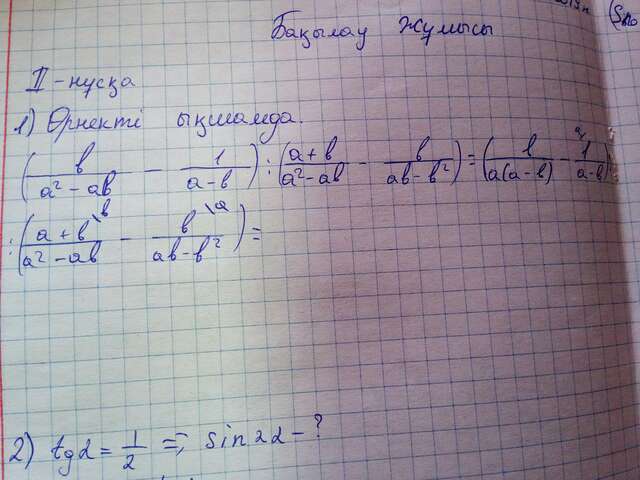 Бақылау Жұмысы
II-нусқа
1) Өрнекті ықшамда.
(b/(a²-ab) - 1/(a-b)) : ((a+b)/(a²-ab) - b/(ab-b²)) = (b/(a(a-b)) - 1\a/(a-b)) :
: ((a+b)\b/(a²-ab) - b\a/(ab-b²)) =
2) tgα = 1/2 =; sin2α - ?